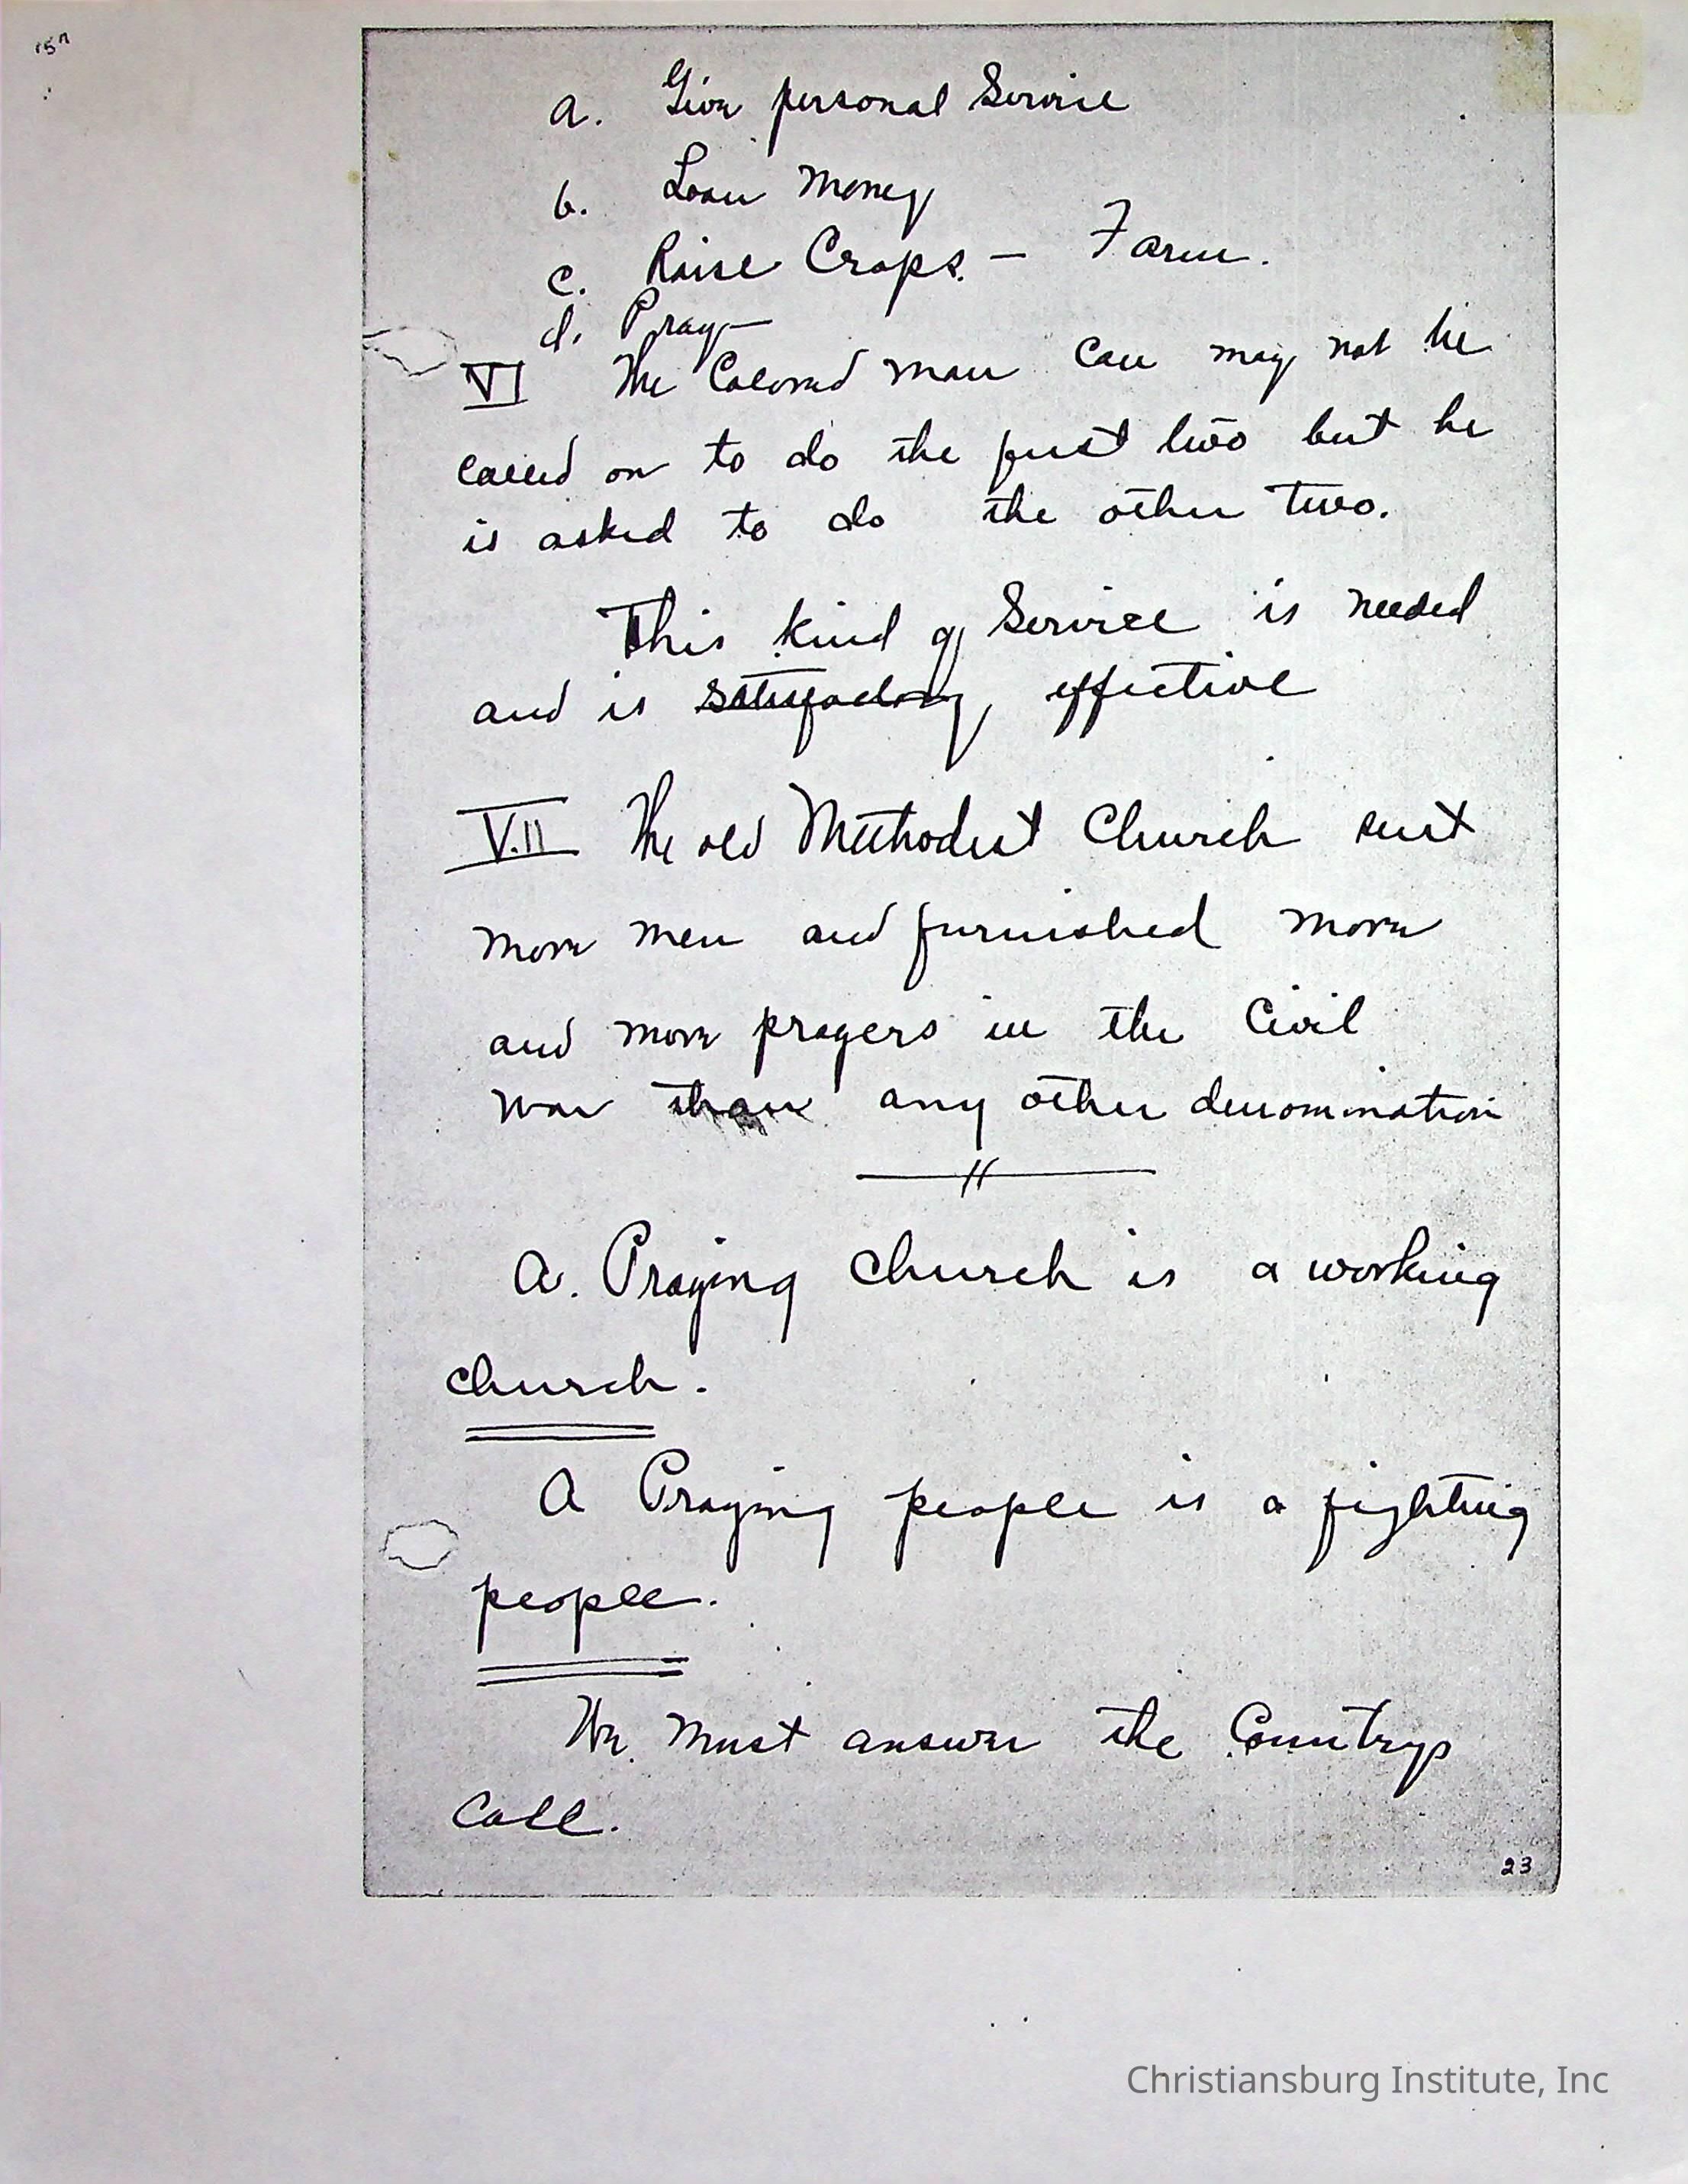 a. Give personal Service
b. Loan Money
c. Raise Crops. – Farm.
d. Pray –
VI The Colored man can may not be
called on to do the first two but he
is asked to do the other two.
This kind of Service is needed
and is satisfactory, effective
VII The old Methodist Church sent
more men and furnished more
and more prayers in the Civil
war than any other denomination
A. Praying church is a working
church.
A Praying people is a fighting
people.
We must answer the Countrys
Call.
23
Christiansburg Institute, Inc